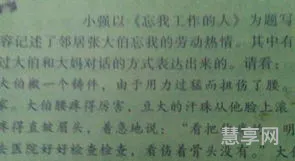 小强以《忘我工作的人》为题写
容记述了邻居张大伯忘我的劳动热情。其中有
过大伯和大妈对话的方式表达出来的。请看:
大伯搬一个铸件,由于用力过猛而担伤了腰。
家。大伯腰疼得厉害,豆大的汗珠从他脸上滚
疼得直皱眉头,着急地说:"看把你
明
去医院好好检查检查,看伤着骨头没有。"大
慧享网
www.